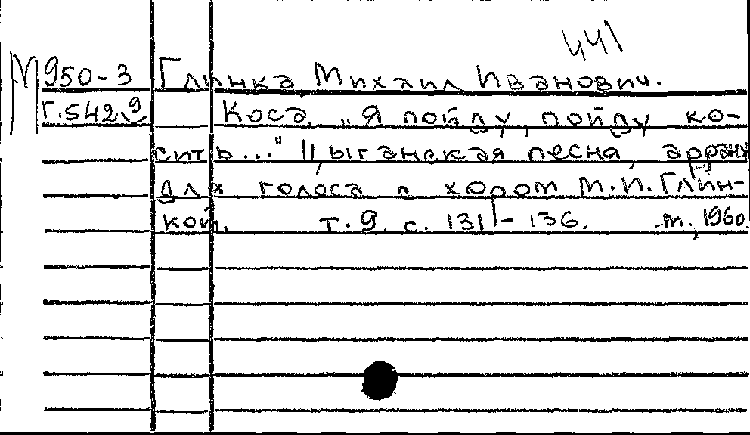 441
М950-3 Глинка, Михаил Иванович.
Г.542.9 Коса. "Я пойду, пойду ко-
сить..." Цыганская песня, аранж.
для голоса с хором М.И. Глин-
кой. т. 9. с. 131-136. М., 1960.